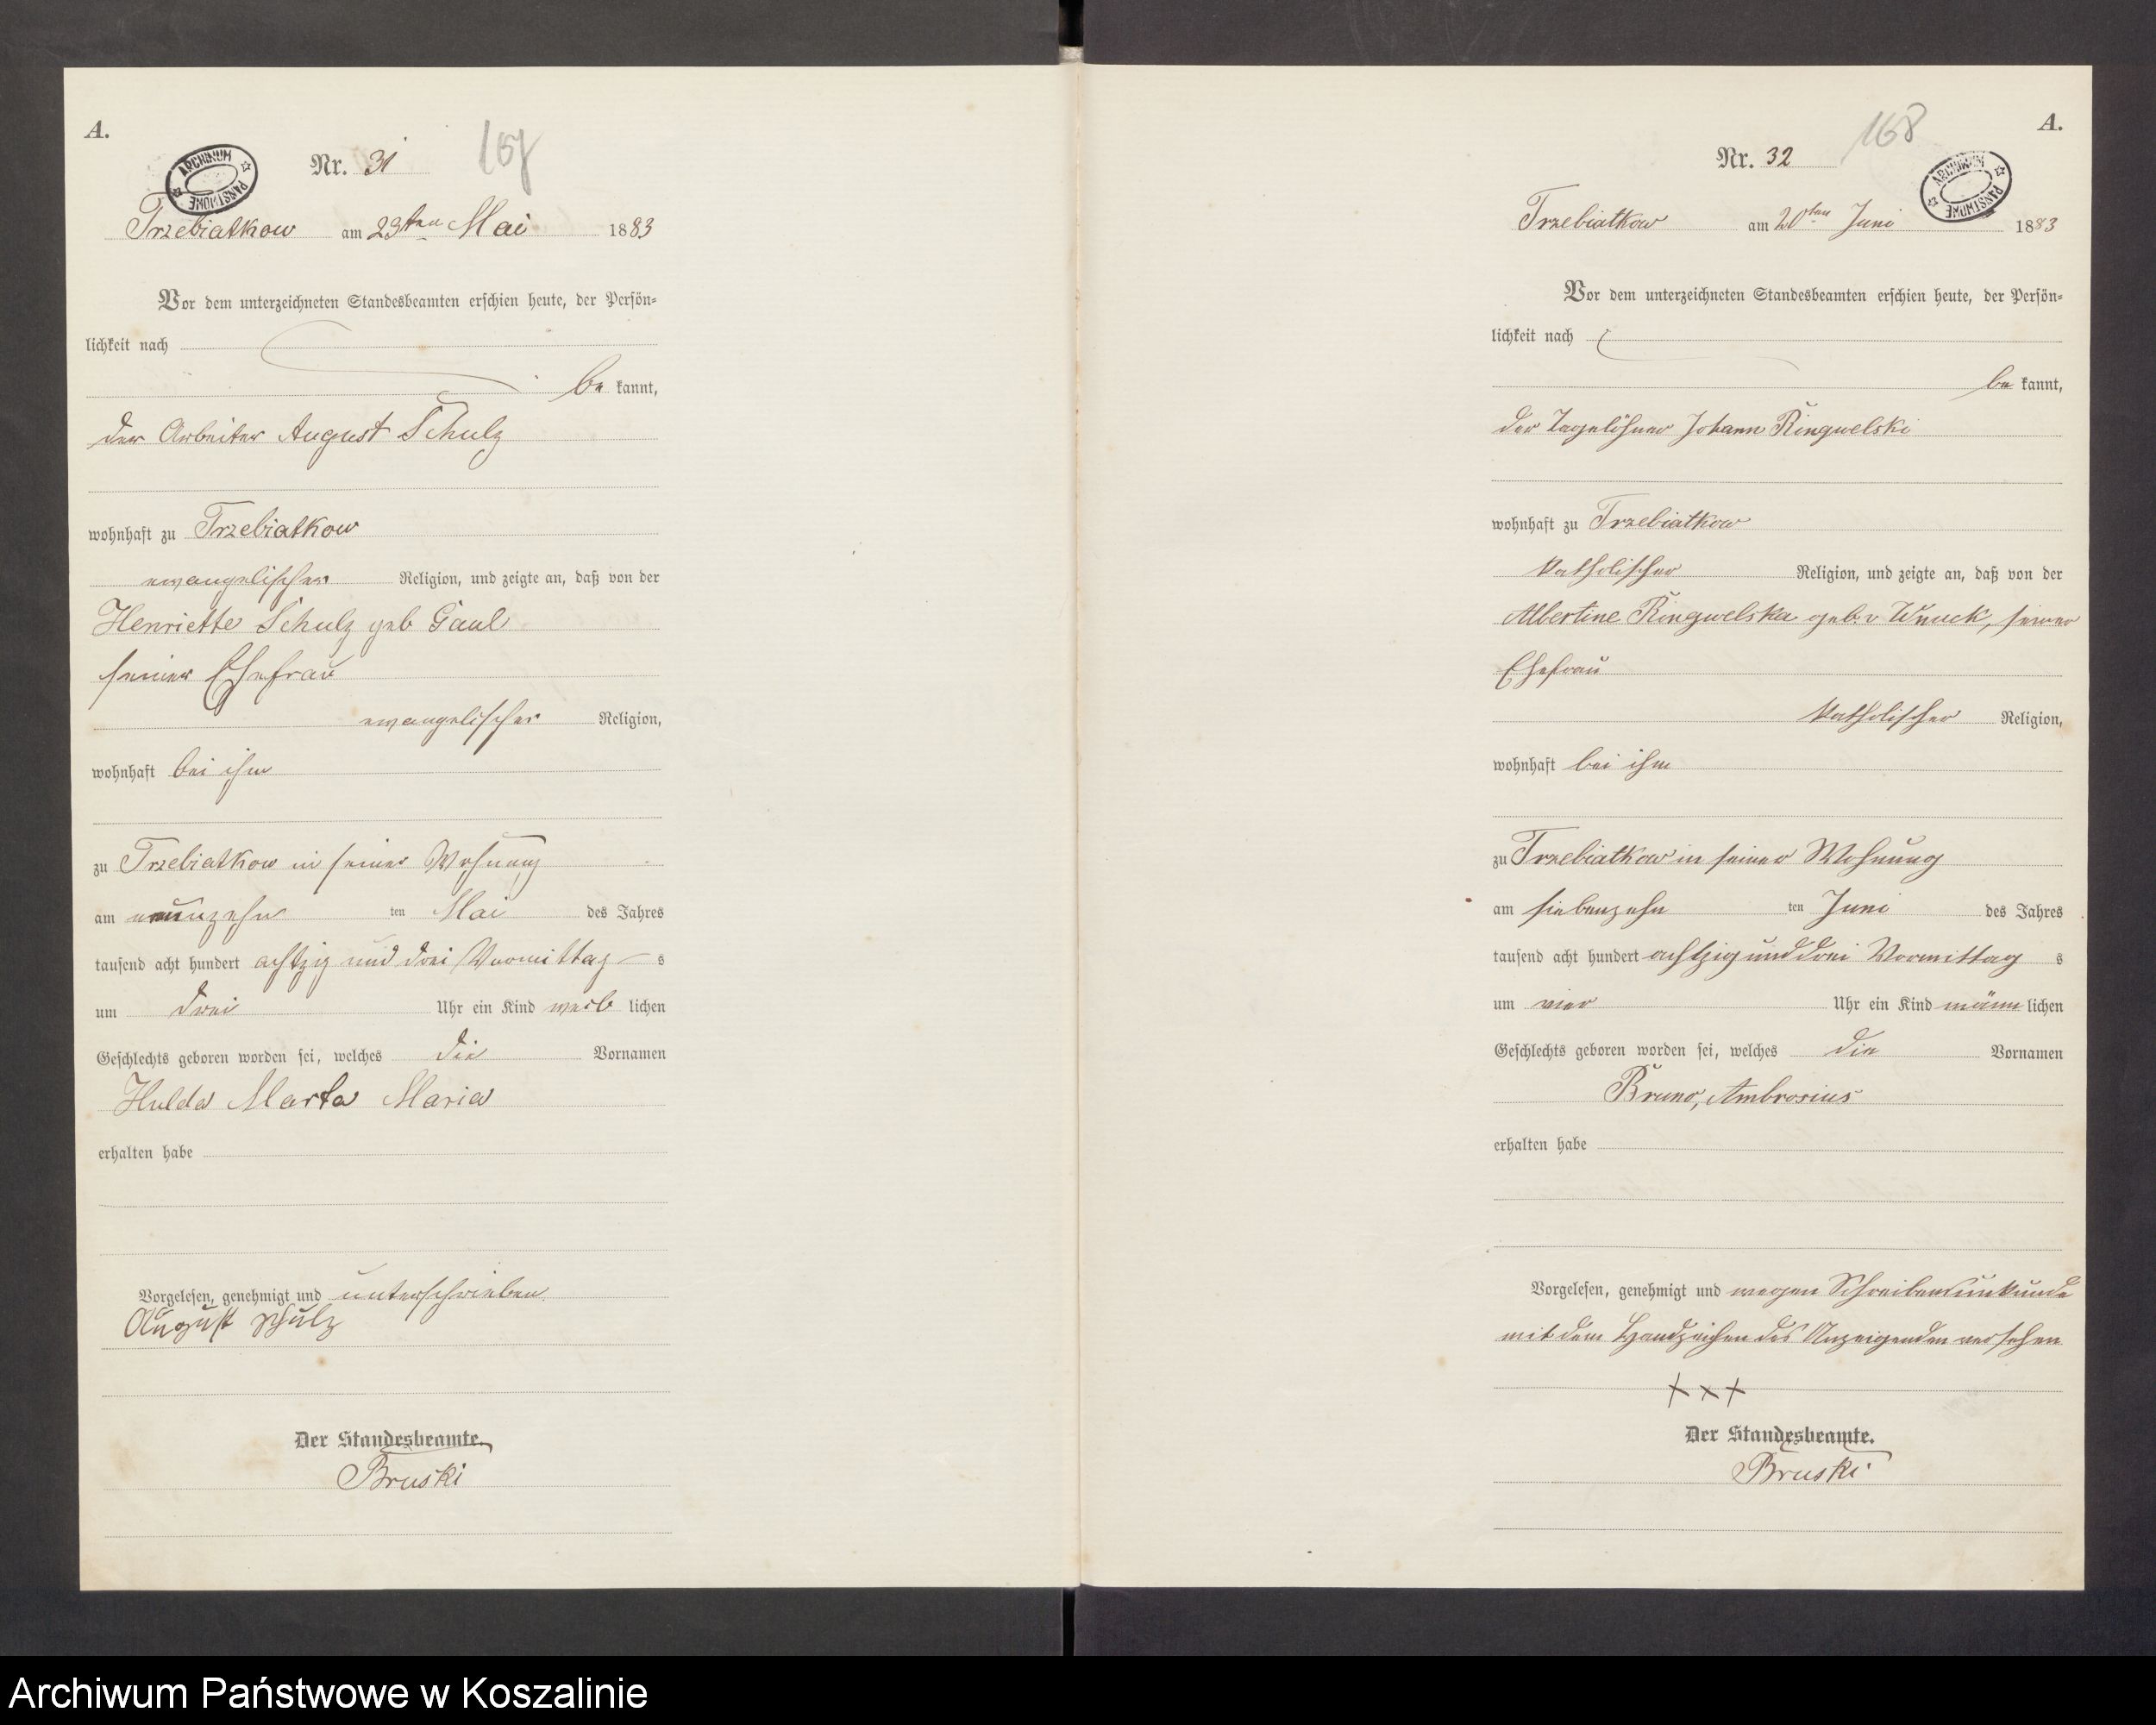 A.
ARCHIWUM PAŃSTWOWE
Nr. 31
167
Trzebiatkow am 23ten Mai 1883
Vor dem unterzeichneten Standesbeamten erschien heute, der Persön-
lichkeit nach
be kannt,
der Arbeiter August Schulz
wohnhaft zu Trzebiatkow
evangelischer Religion, und zeigte an, daß von der
Henriette Schulz geb Gaul
seiner Ehefrau
evangelischer Religion,
wohnhaft bei ihm
zu Trzebiatkow in seiner Wohnung
am neunzehn ten Mai des Jahres
tausend acht hundert achtzig und drei Vormittag s
um drei Uhr ein Kind weib lichen
Geschlechts geboren worden sei, welches die Vornamen
Hulda Marta Maria
erhalten habe
Vorgelesen, genehmigt und unterschrieben
August Schulz
Der Standesbeamte.
Bruski
A.
168
Nr. 32
ARCHIWUM PAŃSTWOWE
Trzebiatkow am 20ten Juni 1883
Vor dem unterzeichneten Standesbeamten erschien heute, der Persön-
lichkeit nach
be kannt,
der Tagelöhner Johann Ringwelski
wohnhaft zu Trzebiatkow
katholischer Religion, und zeigte an, daß von der
Albertine Ringwelska geb. v Wnuck, seiner
Ehefrau
katholischer Religion,
wohnhaft bei ihm
zu Trzebiatkow in seiner Wohnung
am siebenzehn ten Juni des Jahres
tausend acht hundert achtzig und drei Vormittag s
um vier Uhr ein Kind männ lichen
Geschlechts geboren worden sei, welches die Vornamen
Bruno, Ambrosius
erhalten habe
Vorgelesen, genehmigt und wegen Schreibensunkunde
mit dem Handzeichen des Anzeigenden versehen
+ x +
Der Standesbeamte.
Bruski
Archiwum Państwowe w Koszalinie